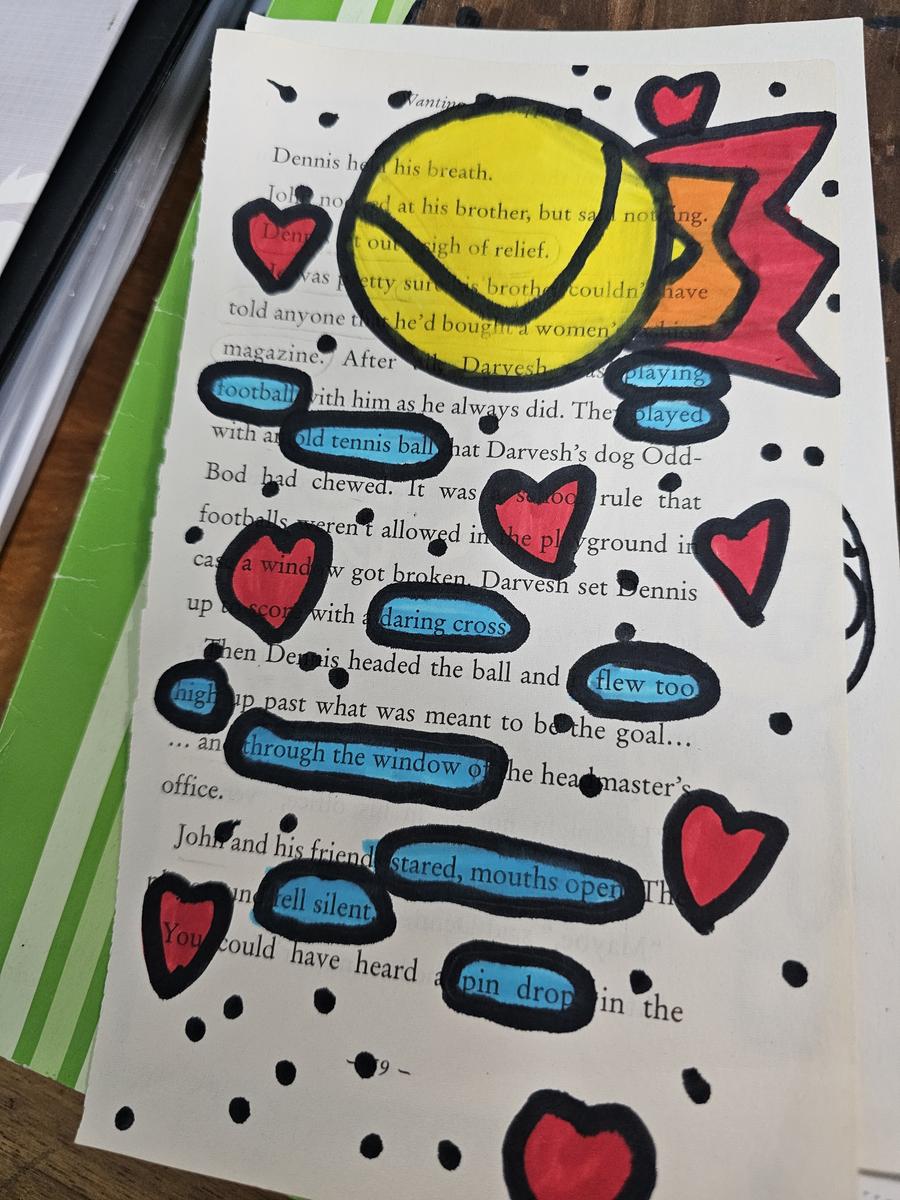 Wanting
Dennis held his breath.
John nodded at his brother, but said nothing.
Dennis let out a sigh of relief.
was pretty sure his brother couldn't have
told anyone that he'd bought a women's fashion
magazine. After Darvesh was playing
football with him as he always did. They played
with an old tennis ball that Darvesh's dog Odd-
Bod had chewed. It was a school rule that
footballs weren't allowed in the playground in
case a window got broken. Darvesh set Dennis
up to score with a daring cross
Then Dennis headed the ball and flew too
high up past what was meant to be the goal...
... and through the window of the headmaster's
office.
John and his friends stared, mouths open The
playground fell silent.
You could have heard a pin drop in the